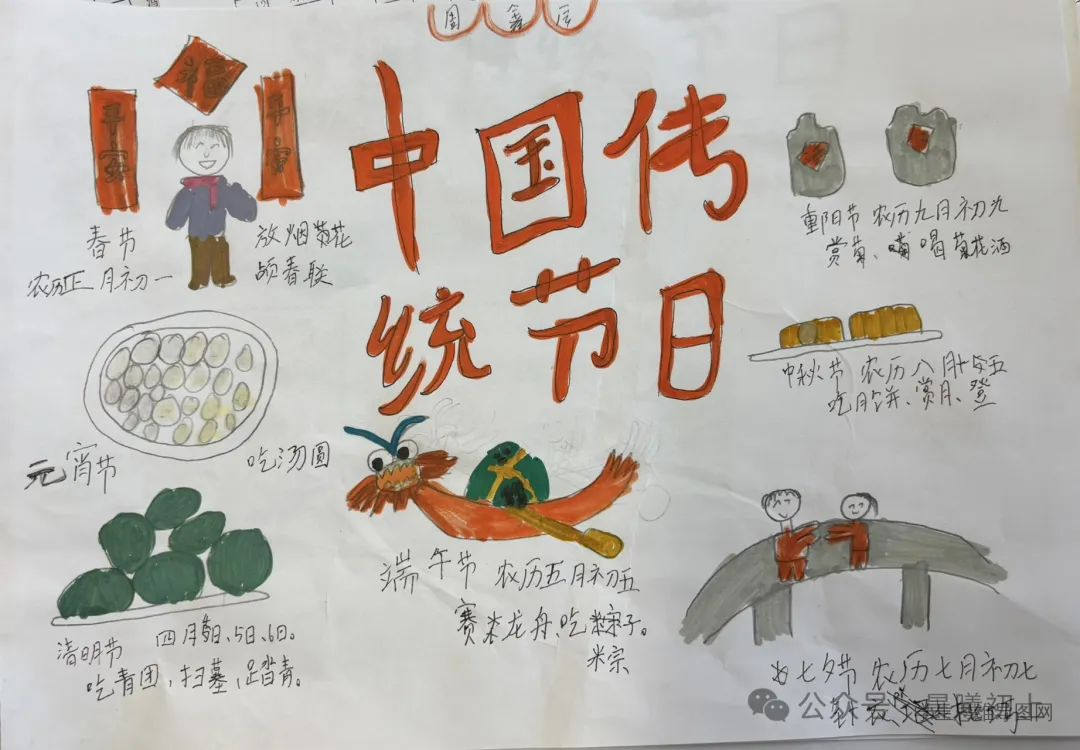 周鑫
福
平安
平安
中国传
统节日
春节
农历正月初一
放烟花
春联
重阳节 农历九月初九
赏菊、喝菊花酒
中秋节 农历八月十五
吃月饼、赏月、登
元宵节
吃汤圆
端午节 农历五月初五
赛龙舟、吃粽子。
清明节 四月 5日、6日。
吃青团,扫墓,踏青。
七夕节 农历七月初七
公众号